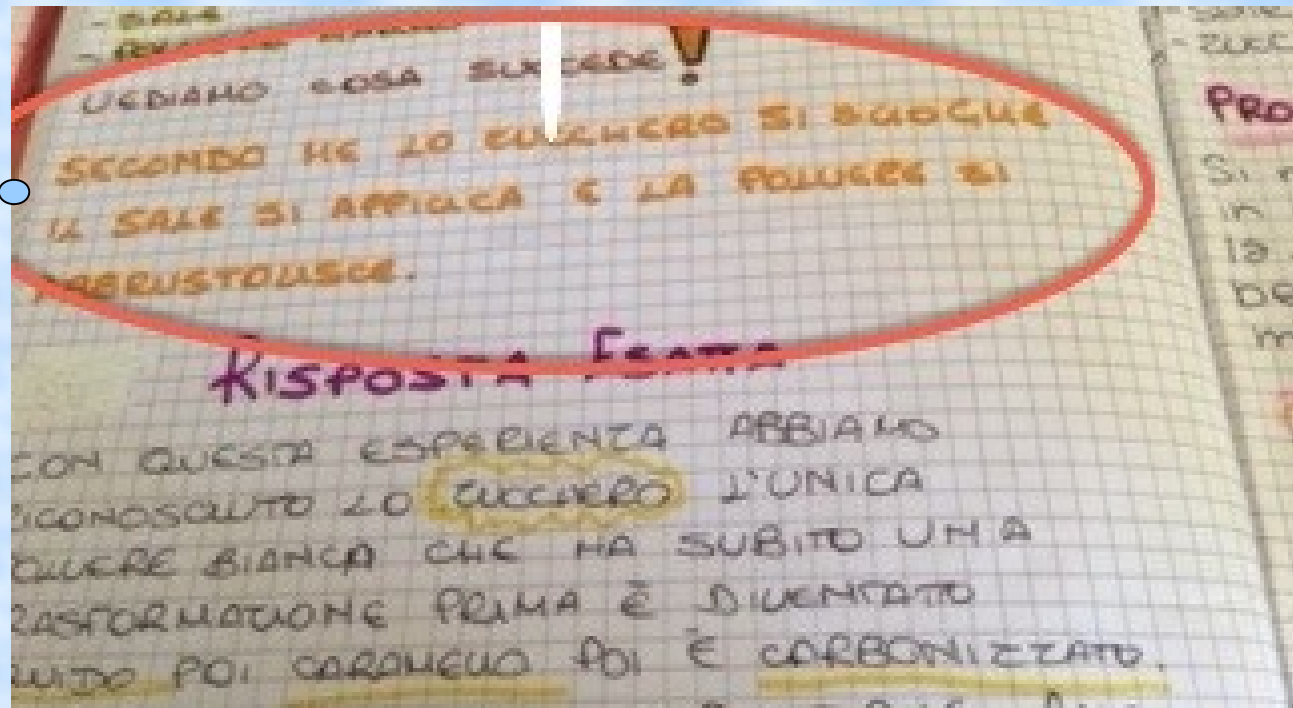 - SALE
VEDIAMO COSA SUCCEDE!
SECONDO ME LO ZUCCHERO SI SCIOGLIE
IL SALE SI APPICCICA E LA POLVERE SI
ABBRUSTOLISCE.
RISPOSTA ESATTA
CON QUESTA ESPERIENZA ABBIAMO
RICONOSCIUTO LO ZUCCHERO L'UNICA
POLVERE BIANCA CHE HA SUBITO UNA
TRASFORMAZIONE PRIMA È DIVENTATO
LIQUIDO POI CARAMELLO POI È CARBONIZZATO.
- ZUCC
PRO
Si
in
la
be
m